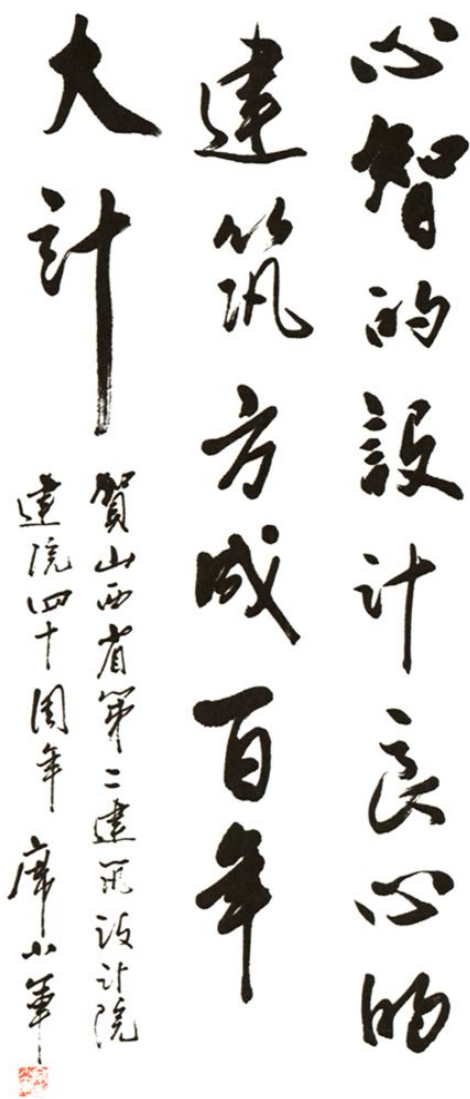 心智的設计良心的
建筑方成百年
大計
贺山西省第二建筑设计院
建院四十周年 席小军